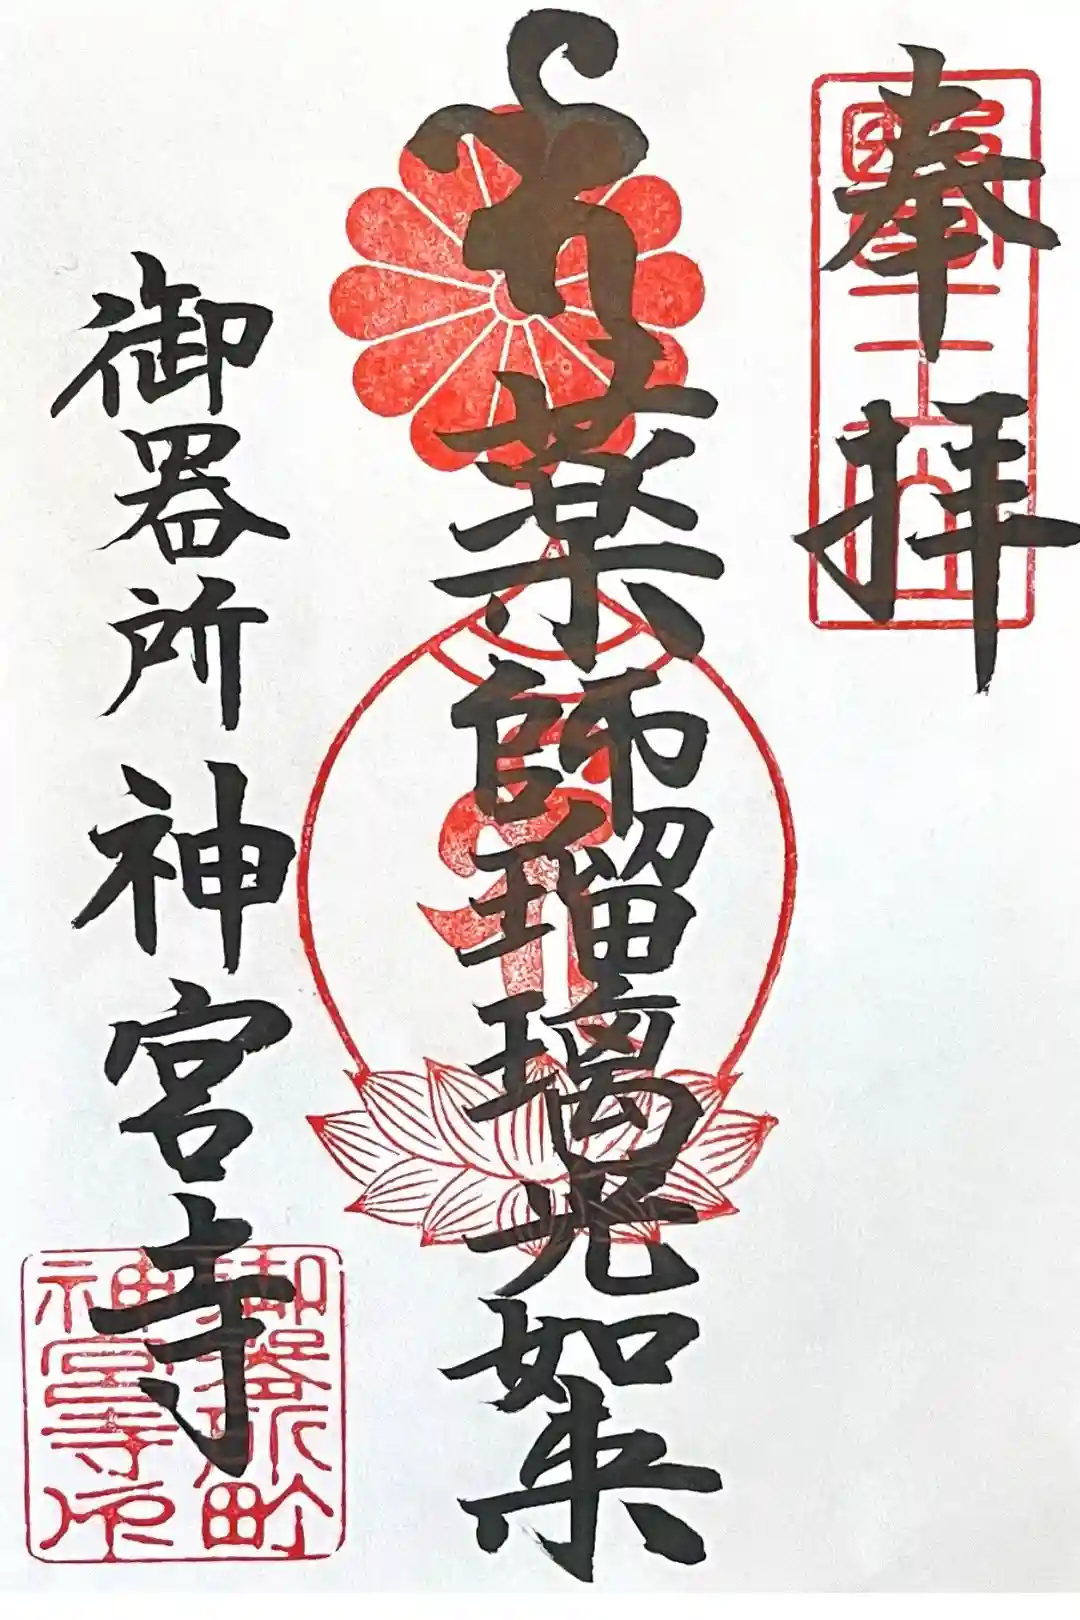 奉拝
薬師瑠璃光如来
御器所神宮寺
御器所町
神宮寺印